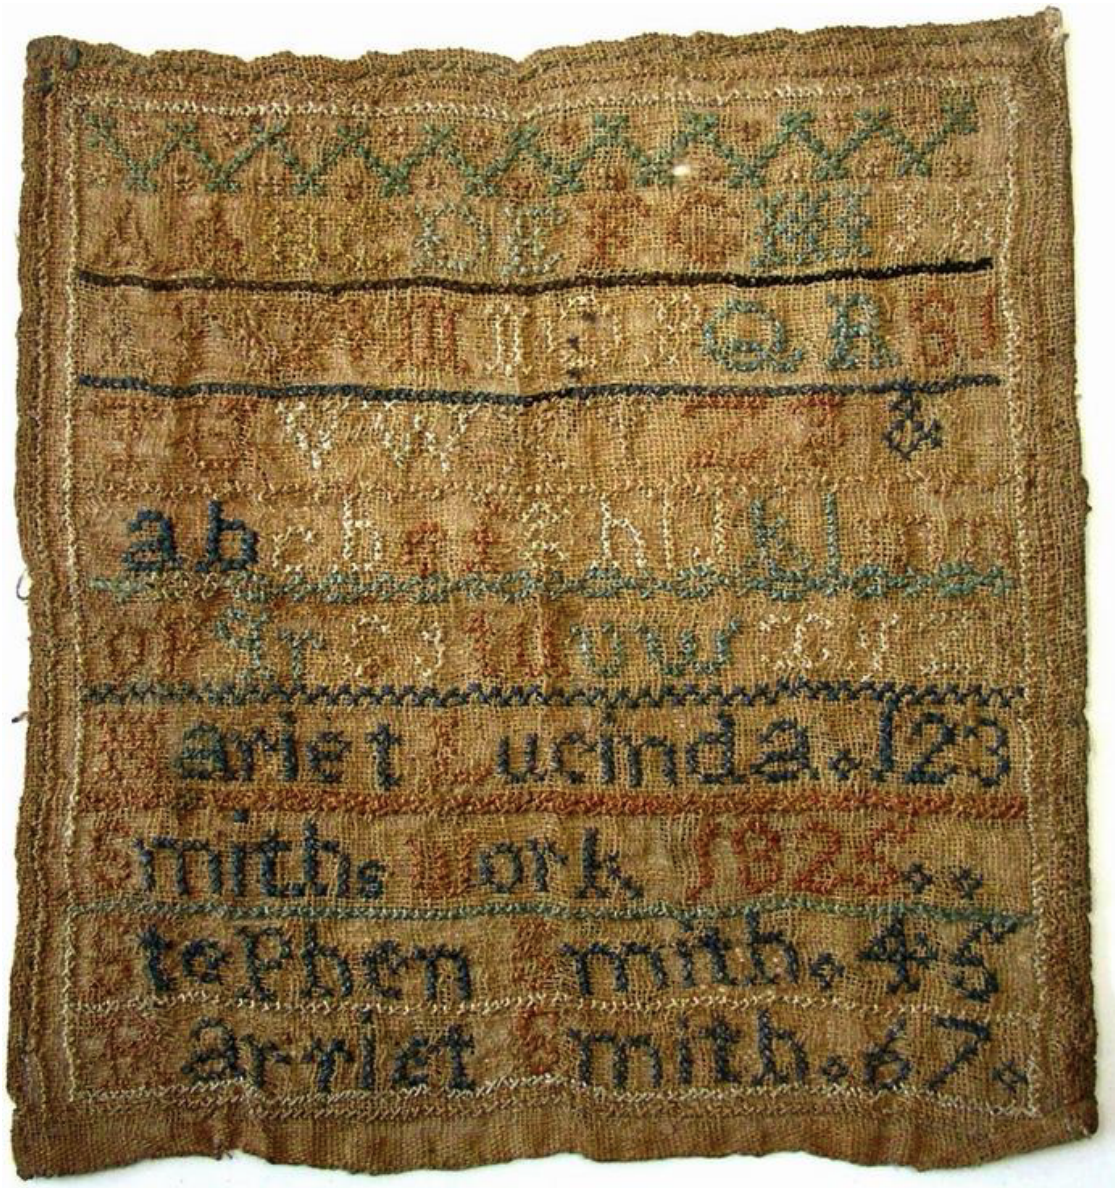 A A B C D E F G H I
M N O P Q R S
T U V W X Y Z &
a b c d e f g h i J k l m n
o p q r t u w x y z
Hariet Lucinda . 123
Smiths Work 1825 . .
Stephen Smith . 45
Harriet Smith . 67 .